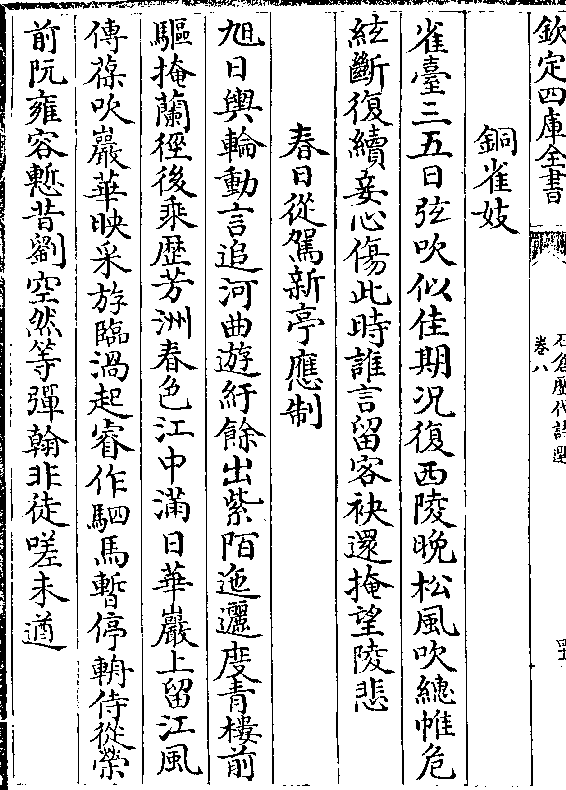 欽定四庫全書
卷八
銅雀妓
雀臺三五日弦吹似佳期況復西陵晚松風吹繐帷危
絃斷復續妾心傷此時誰言留客袂還掩望陵悲
春日從駕新亭應制
旭日輿輪動言追河曲遊紆餘出紫陌迤邐度青樓前
驅掩蘭徑後乘歴芳洲春色江中滿日華巖上留江風
傳葆吹巖華映采斿臨渦起睿作駟馬暫停輈侍從榮
前阮雍容慙昔劉空然等彈翰非徒嗟未遒